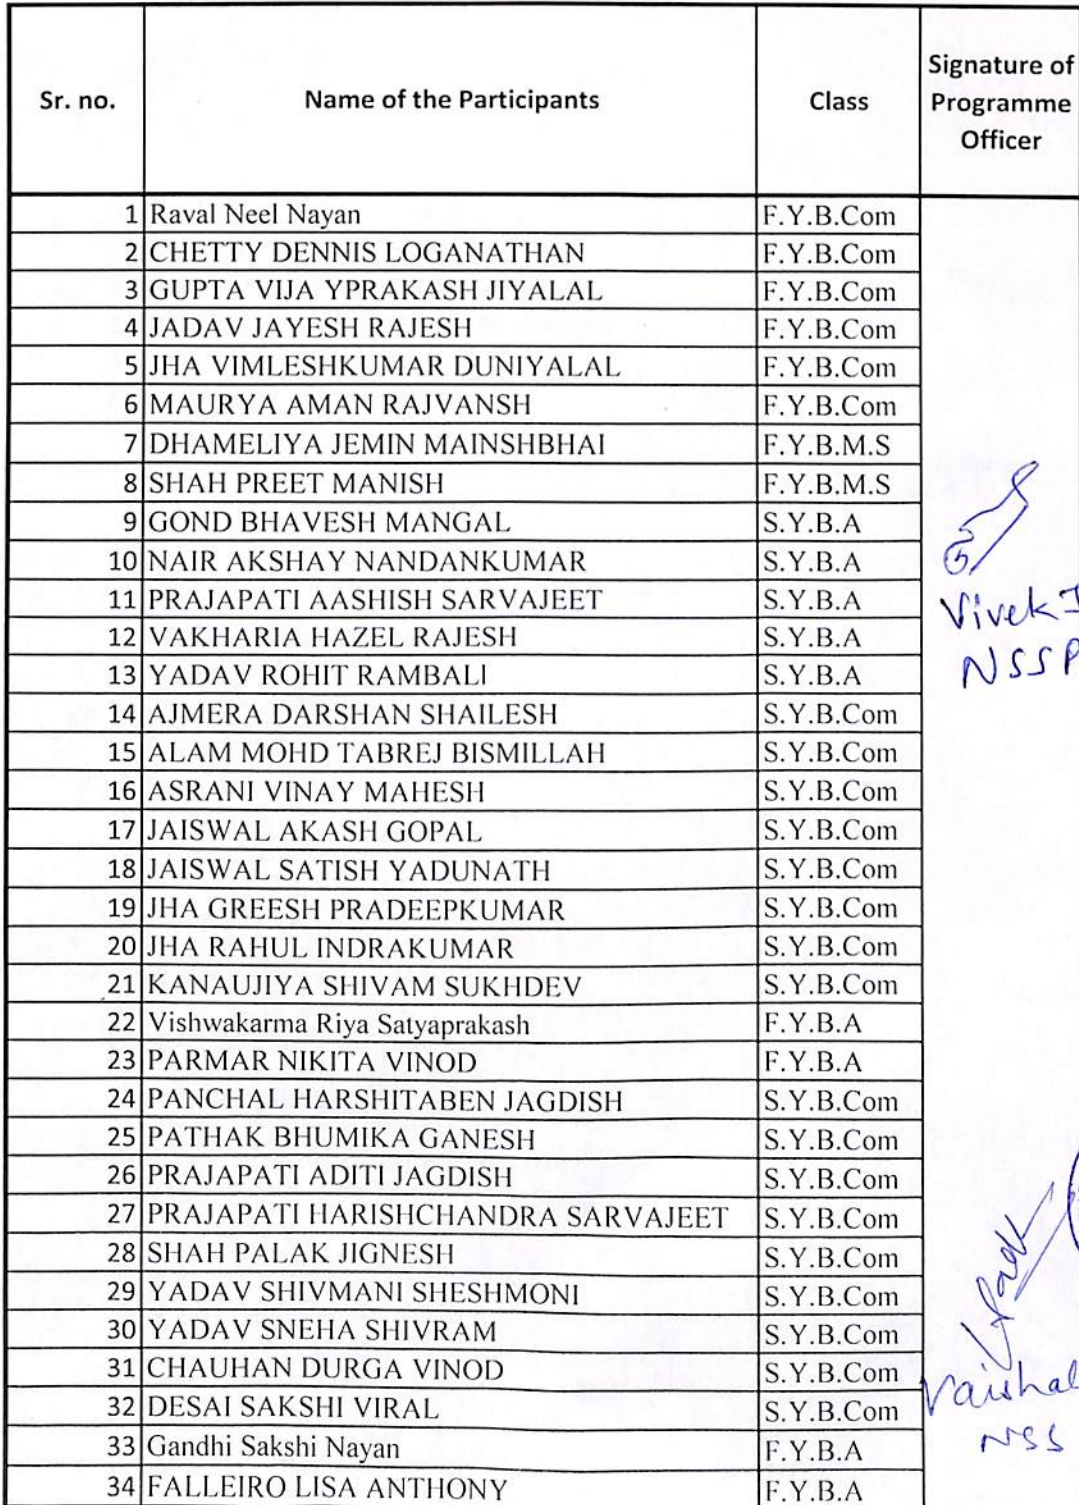 Sr. no. Name of the Participants Class Signature of Programme Officer
1 Raval Neel Nayan F.Y.B.Com
2 CHETTY DENNIS LOGANATHAN F.Y.B.Com
3 GUPTA VIJA YPRAKASH JIYALAL F.Y.B.Com
4 JADAV JAYESH RAJESH F.Y.B.Com
5 JHA VIMLESHKUMAR DUNIYALAL F.Y.B.Com
6 MAURYA AMAN RAJVANSH F.Y.B.Com
7 DHAMELIYA JEMIN MAINSHBHAI F.Y.B.M.S
8 SHAH PREET MANISH F.Y.B.M.S
9 GOND BHAVESH MANGAL S.Y.B.A
10 NAIR AKSHAY NANDANKUMAR S.Y.B.A
11 PRAJAPATI AASHISH SARVAJEET S.Y.B.A
Vivek
12 VAKHARIA HAZEL RAJESH S.Y.B.A
13 YADAV ROHIT RAMBALI S.Y.B.A
NSS P
14 AJMERA DARSHAN SHAILESH S.Y.B.Com
15 ALAM MOHD TABREJ BISMILLAH S.Y.B.Com
16 ASRANI VINAY MAHESH S.Y.B.Com
17 JAISWAL AKASH GOPAL S.Y.B.Com
18 JAISWAL SATISH YADUNATH S.Y.B.Com
19 JHA GREESH PRADEEPKUMAR S.Y.B.Com
20 JHA RAHUL INDRAKUMAR S.Y.B.Com
21 KANAUJIYA SHIVAM SUKHDEV S.Y.B.Com
22 Vishwakarma Riya Satyaprakash F.Y.B.A
23 PARMAR NIKITA VINOD F.Y.B.A
24 PANCHAL HARSHITABEN JAGDISH S.Y.B.Com
25 PATHAK BHUMIKA GANESH S.Y.B.Com
26 PRAJAPATI ADITI JAGDISH S.Y.B.Com
27 PRAJAPATI HARISHCHANDRA SARVAJEET S.Y.B.Com
28 SHAH PALAK JIGNESH S.Y.B.Com
29 YADAV SHIVMANI SHESHMONI S.Y.B.Com
30 YADAV SNEHA SHIVRAM S.Y.B.Com
31 CHAUHAN DURGA VINOD S.Y.B.Com
Vaishal
32 DESAI SAKSHI VIRAL S.Y.B.Com
33 Gandhi Sakshi Nayan F.Y.B.A
NSS
34 FALLEIRO LISA ANTHONY F.Y.B.A